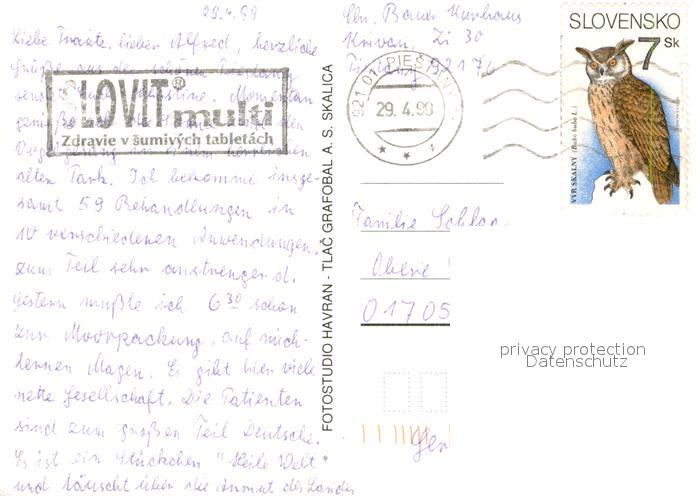 29.4.99
Liebe Traute, lieber Alfred, herzliche
Grüße aus der schönen
Momentan
den
Vogelgesang in
alten Park. Ich bekomme insge-
samt 59 Behandlungen in
10 verschiedenen Anwendungen,
zum Teil sehr anstrengend.
Gestern mußte ich 6 30 schon
zur Moorpackung, auf nüch-
ternen Magen. Es gibt hier viele
nette Gesellschaft. Die Patienten
sind zum großen Teil Deutsche.
Es ist ein Stückchen "Heile Welt"
und täuscht über die Anmut des Landes
SLOVIT® multi
Zdravie v šumivých tabletách
FOTOSTUDIO HAVRAN - TLAČ GRAFOBAL A. S. SKALICA
Chr. Bauer Kurhaus
Krivan, Zi 30
92176
921 01 PIEŠŤANY
29.4.99
SLOVENSKO
7 Sk
VÝR SKALNÝ (Bubo bubo L.)
Familie
Obere
01705
privacy protection
Datenschutz